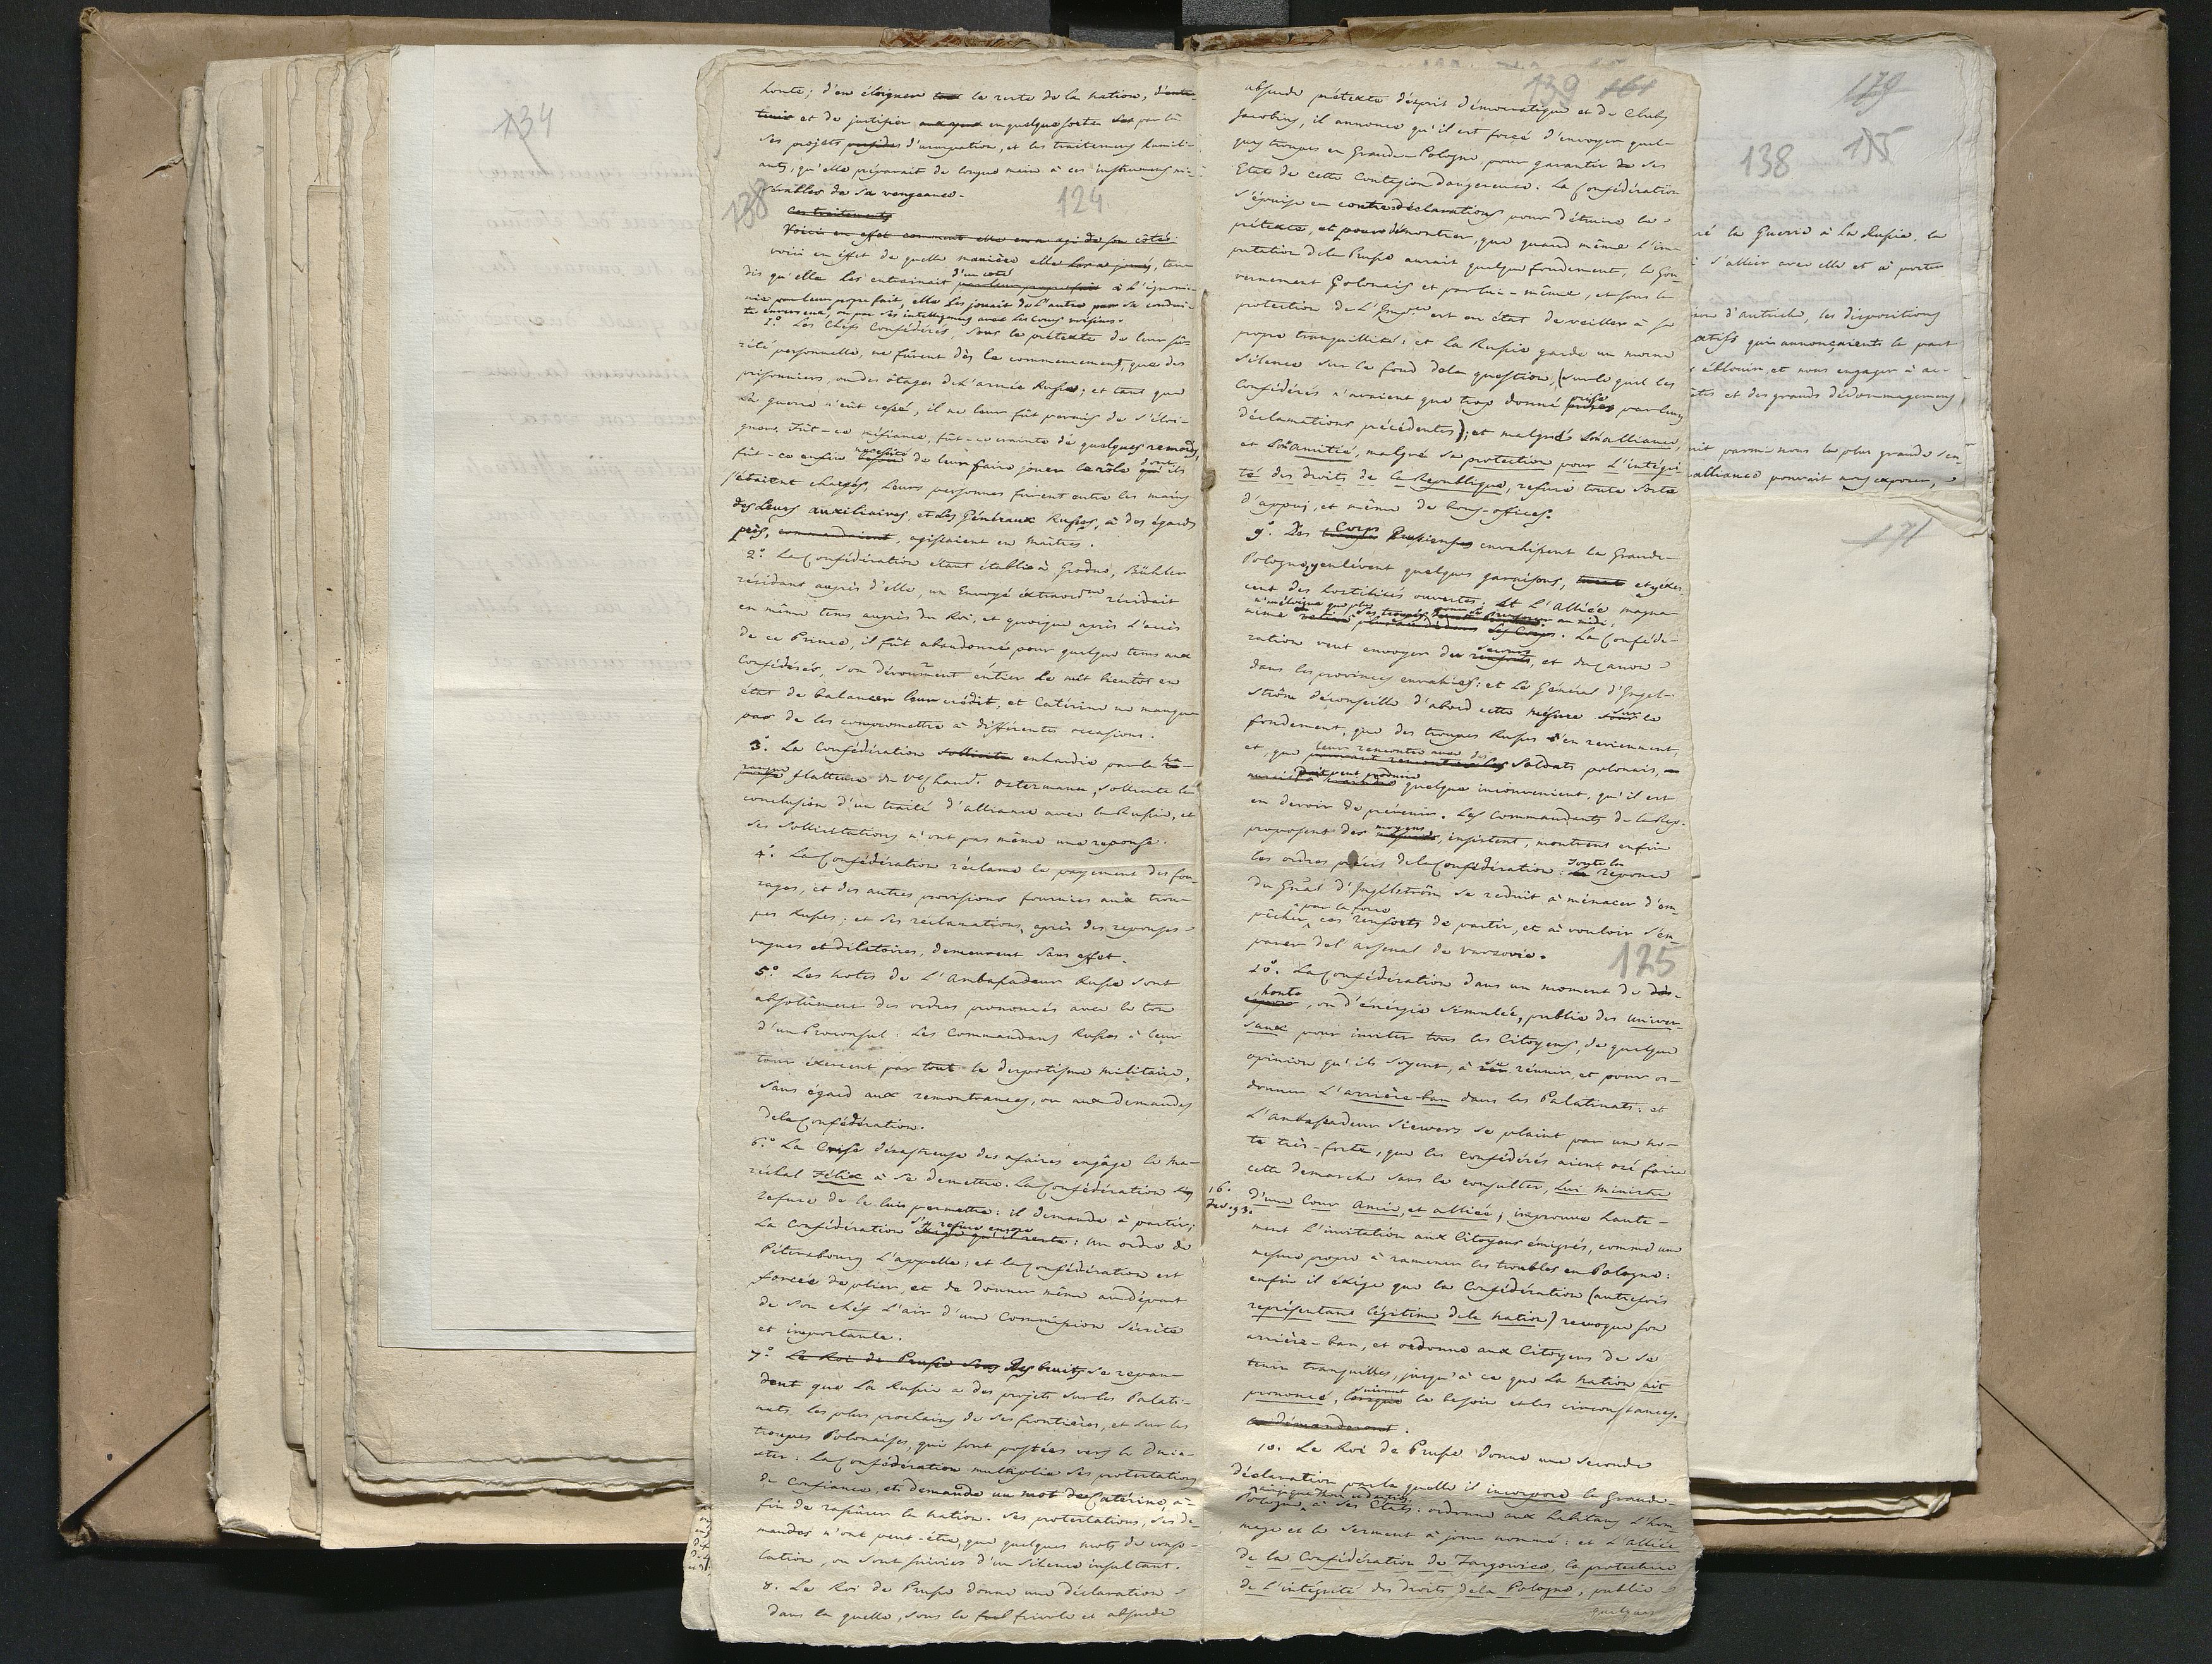 134
138
124
honte; d'en éloigner tout le reste de la nation, d'entre-
tenir et de justifier en quelque sorte par là
ses projets perfides d'usurpation, et les traitemens humili-
ants, qu'elle préparait de longue main à ces instrumens mi-
sérables de sa vengeance.
Ces traitements
Voici en effet comment elle en a agi de son côté
voici en éffet de quelle manière elle les a joués, tan-
d'un coté
dis qu'elle les entrainait par leur propre fait à l'ignomi-
nie par leur propre fait, elle les jouait de l'autre par sa condui-
te envers eux, ou par ses intelligences avec les Cours voisines.
1.° Les Chefs Confédérés, sous le prétexte de leur sû-
reté personnelle, ne fûrent dès le commencement, que des
prisonniers, ou des ôtages de l'armée Russe; et tant que
la guerre n'eût cessé, il ne leur fût permis de s'éloi-
gner. Fût-ce méfiance, fût-ce crainte de quelques remords,
nécessité dont
fût-ce enfin besoin de leur faire jouer le rôle qu'ils
s'étaient chargés, leurs personnes furent entre les mains
des leurs auxiliaires, et les Généraux Russes, à des égards
près, commandaient, agissaient en maîtres.
2.° La Confédération étant établie à Grodno, Bühler
résidant auprès d'elle, un Envoyé extraord.re résidait
en même tems auprès du Roi, et quoique après l'accès
de ce Prince, il fût abandonné pour quelque tems aux
Confédérés, son dévoûment entier le mit bientôt en
état de balancer leur crédit, et Catérine ne manqua
pas de les compromettre à différentes occasions.
3.° La Confédération sollicite enhardie par la ha-
rangue flatteuse du V. Chanc.r Ostermann, sollicite la
conclusion d'un traité d'alliance avec la Russie, et
ses sollicitations n'ont pas même une reponse.
4.° La Confédération réclame le payement des fou-
rages, et des autres provisions fournies aux trou-
pes Russes; et ses réclamations, après des reponses
vagues et dilatoires, demeurent sans effet.
5.° Les notes de l'Ambassadeur Russe sont
absolûment des ordres prononcés avec le ton
d'un Proconsul: Les Commandans Russes à leur
tour éxercent par tout le despotisme militaire,
sans égard aux remontrances, ou aux demandes
de la Confédération.
6.° La Crise désastreuse des afaires engâge le Ma-
réchal Félix à se demettre. La Confédération
refuse de le lui permettre: il demande à partir;
s'y refuse encore
La Confédération exige qu'il reste: un ordre de
Pétersbourg l'appelle; et la Confédération est
forcée de plier, et de donner même au départ
de son chéf l'air d'une Commission sécrète
et importante.
7.° Le Roi de Prusse sous des bruits se repan-
dent que la Russie a des projets sur les Palati-
nats, les plus prochains de ses frontières, et sur les
troupes Polonaises, qui sont postées vers le Dnie-
ster: La Confédération multiplie ses protestations
de confiance, et demande un mot de Catérine, à-
fin de rassûrer la nation. Ses protestations, ses de-
mandes n'ont peut-être, que quelques mots de conso-
lation, ou sont suivies d'un silence insultant.
8. Le Roi de Prusse donne une déclaration
dans la quelle, sous le frivole et absurde
139 161
absurde prétexte d'esprit démocratique et de Clubs
Jacobins, il annonce qu'il est forçé d'envoyer quel-
ques troupes en Grande-Pologne, pour garantir de ses
Etats de cette Contagion dangereuse. La Confédération
s'épuise en contre-déclarations pour détruire le
prétexte, et pour démontrer, que quand même l'im-
putation de la Prusse aurait quelque fondement, le Gou-
vernement Polonais et par lui-même, et sous la
protection de l'Imp.ce est en état de veiller à sa
propre tranquillité: et la Russie garde un morne
silence sur le fond de la question, (sur le quel les
prise
Confédérés n'avaient que trop donné par leurs
déclamations précédentes); et malgré son alliance,
et son Amitié, malgré sa protection pour l'intégri-
té des droits de la République, refuse toute sorte
d'appui, et même de bons-offices.
Corps
9.° Des troupes Prussiens envahissent la Grande-
Pologne, y enlévent quelques garnisons, et y éxer-
cent des hostilités ouvertes. Et l'Alliée magna-
nime La Confédé-
secours
ration veut envoyer des renforts, et du canon
dans les provinces envahies: et le Général d'Ingel-
sur
ström déconseille d'abord cette mésure sous le
fondement, que des troupes Russes s'en reviennent,
leur rencontre avec des
et, que pouvant rencontrer les soldats polonais,
peut produire
quelque inconvenient, qu'il est
en devoir de prévenir. Les Commandants de la Rep.
moyens
proposent des , insistent, montrent enfin
toute la
les ordres précis de la Confédération: La réponse
du Gnâl d'Ingelström se reduit à ménacer d'em-
par la force
pêcher, ces renforts de partir, et à vouloir s'em-
parer de l'arsenal de Varsovie.
125
10.° La Confédération dans un moment de dés-
honte
espoir, ou d'énérgie simulée, publie des univer-
saux pour inviter tous les Citoyens, de quelque
se
opinion qu'ils soyent, à réunir, et pour or-
donner l'arrière-ban dans les Palatinats: et
l'Ambassadeur Siewers se plaint par une no-
te très-forte, que les Confédérés aient osé faire
cette demarche sans le consulter, lui Ministre
16.
Fev. 93.
d'une Cour Amie, et alliée; improuve haute-
ment l'invitation aux Citoyens émigrés, comme une
mesure propre à ramener les troubles en Pologne:
enfin il éxige que la Confédération (autrefois
représentant légitime de la nation) revoque son
arrière-ban, et ordonne aux Citoyens de se
tenir tranquilles, jusqu'à ce que La nation ait
suivant
prononcé, lorsque le besoin et les circonstances.
le démanderont.
10. Le Roi de Prusse donne une seconde
déclaration par la quelle il incorpore la Grande-
Pologne, à ses Etats: ordonne aux habitans l'hom-
mage et le serment à jour nommé: et l'Alliée
de la Confédération de Targowice, la protectrice
de l'intégrité des droits de la Pologne, publie
quelques
179
138 135
ré la Guerre à la Russie, la
s'allier avec elle et à porter
d'Autriche, les dispositions
qui annonçaient le part
éblouir, et nous engager à ac-
et des grands dédommagemens
ait parmi nous la plus grande sen-
alliance pourrait nous exposer,
171